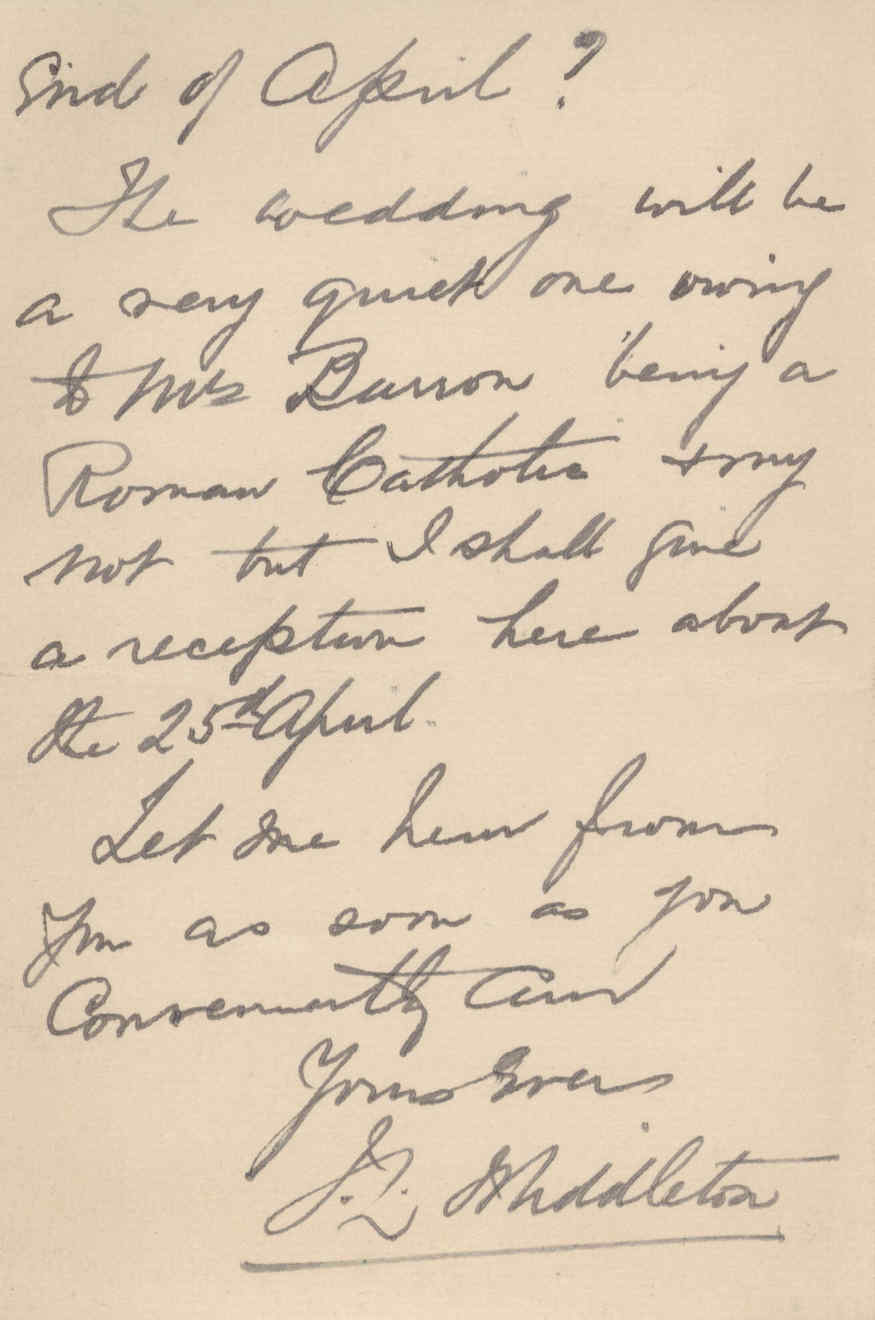 End of April ?
The wedding will be
a very quiet one owing
to Mrs Barron being a
Roman Catholic & my
not but I shall give
a reception here about
the 25th April.
Let me hear from
you as soon as you
Conveniently can
Yours Ever
J. Middleton